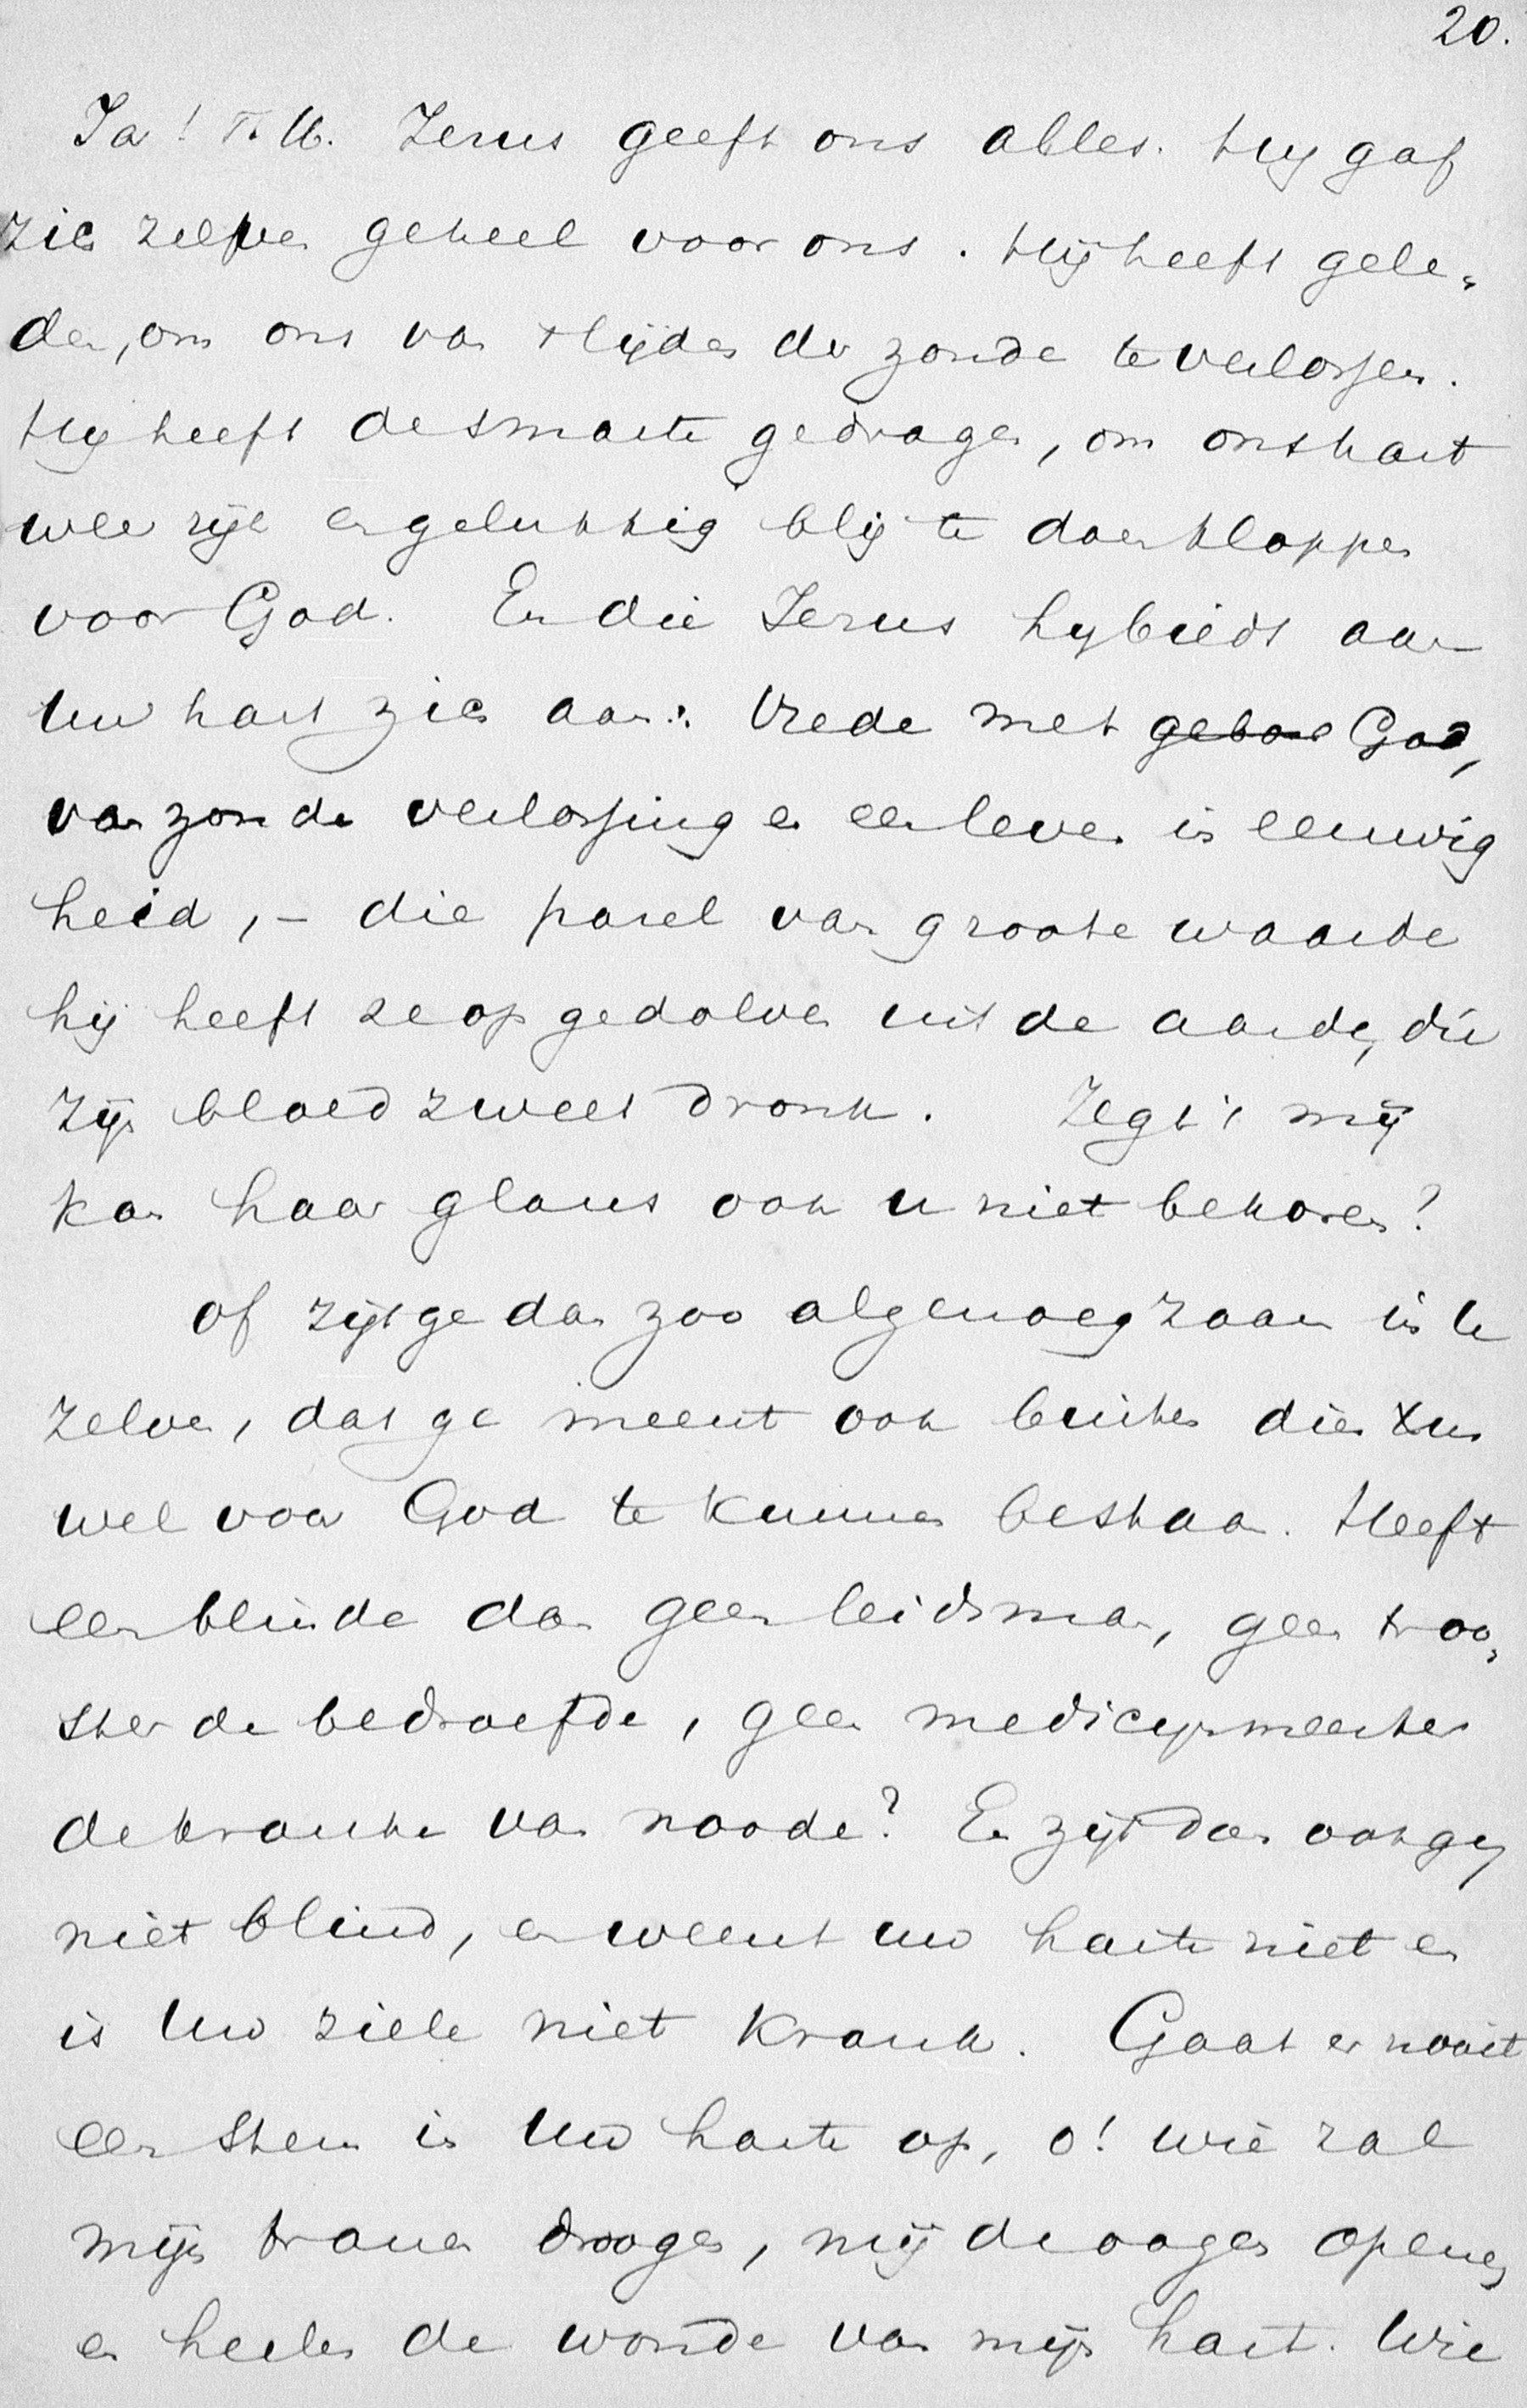 20.
Ja! T. M. Jezus geeft ons alles. Hij gaf
zich zelven geheel voor ons. Hij heeft gele-
den, om ons van 't lijden der zonde te verlossen.
Hij heeft de smarte gedragen, om ons hart
wee zijn en gelukkig blij te doen kloppen
voor God. En die Jezus hij biedt aan
Uw hart zich aan: Vrede met God,
van zonde verlossing en een leven in eeuwig
heid, – die parel van groote waarde
hij heeft ze op gedolven uit de aarde, die
zijn bloed zweet dronk. Zegt 't mij
kan haar glans ook u niet bekoren?
of zijt ge dan zoo algenoegzaam in U
zelven, dat ge meent ook buiten dien Xus
wel voor God te kunnen bestaan. Heeft
een blinde dan geen leidsman, geen troo-
ster de bedroefde, geen medicijnmeester
de kranke van noode? En zijt dan ook gij
niet blind, en weent uw harte niet en
is Uw ziele niet krank. Gaat er nooit
een stem in Uw harte op, o! wie zal
mijn tranen droogen, mij de oogen openen,
en heelen de wonde van mijn hart. Wie